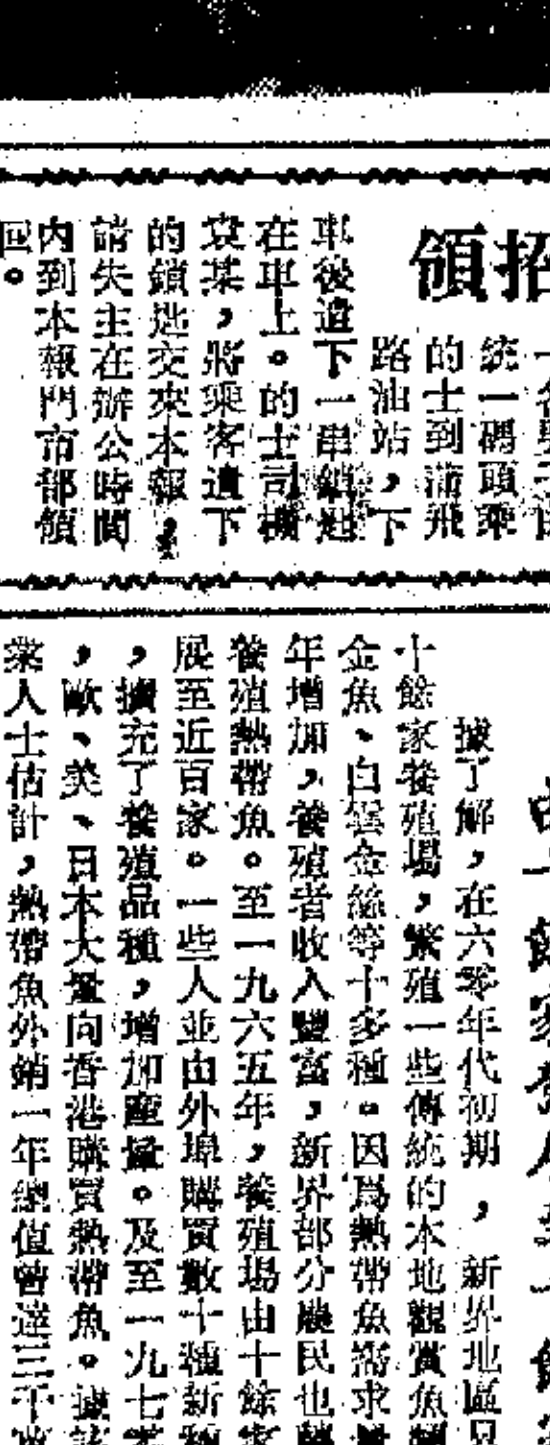 招領
統一碼頭乘
的士到蒲飛
路油站，下
車後遺下一串鎖匙
在車上。的士司機
袁某，將乘客遺下
的鎖匙交來本報，
請失主在辦公時間
內到本報門市部領
回。
據了解，在六零年代初期，新界地區
十餘家養殖場，繁殖一些傳統的本地觀賞魚類
金魚、白雲金絲等十多種。因爲熱帶魚需求量
年增加，養殖者收入豐富，新界部分農民也轉
養殖熱帶魚。至一九六五年，養殖場由十餘家
展至近百家。一些人並由外埠購買數十種新種
，擴充了養殖品種，增加產量。及至一九七零
，歐、美、日本大量向香港購買熱帶魚。據該
業人士估計，熱帶魚外銷一年總值曾達三千